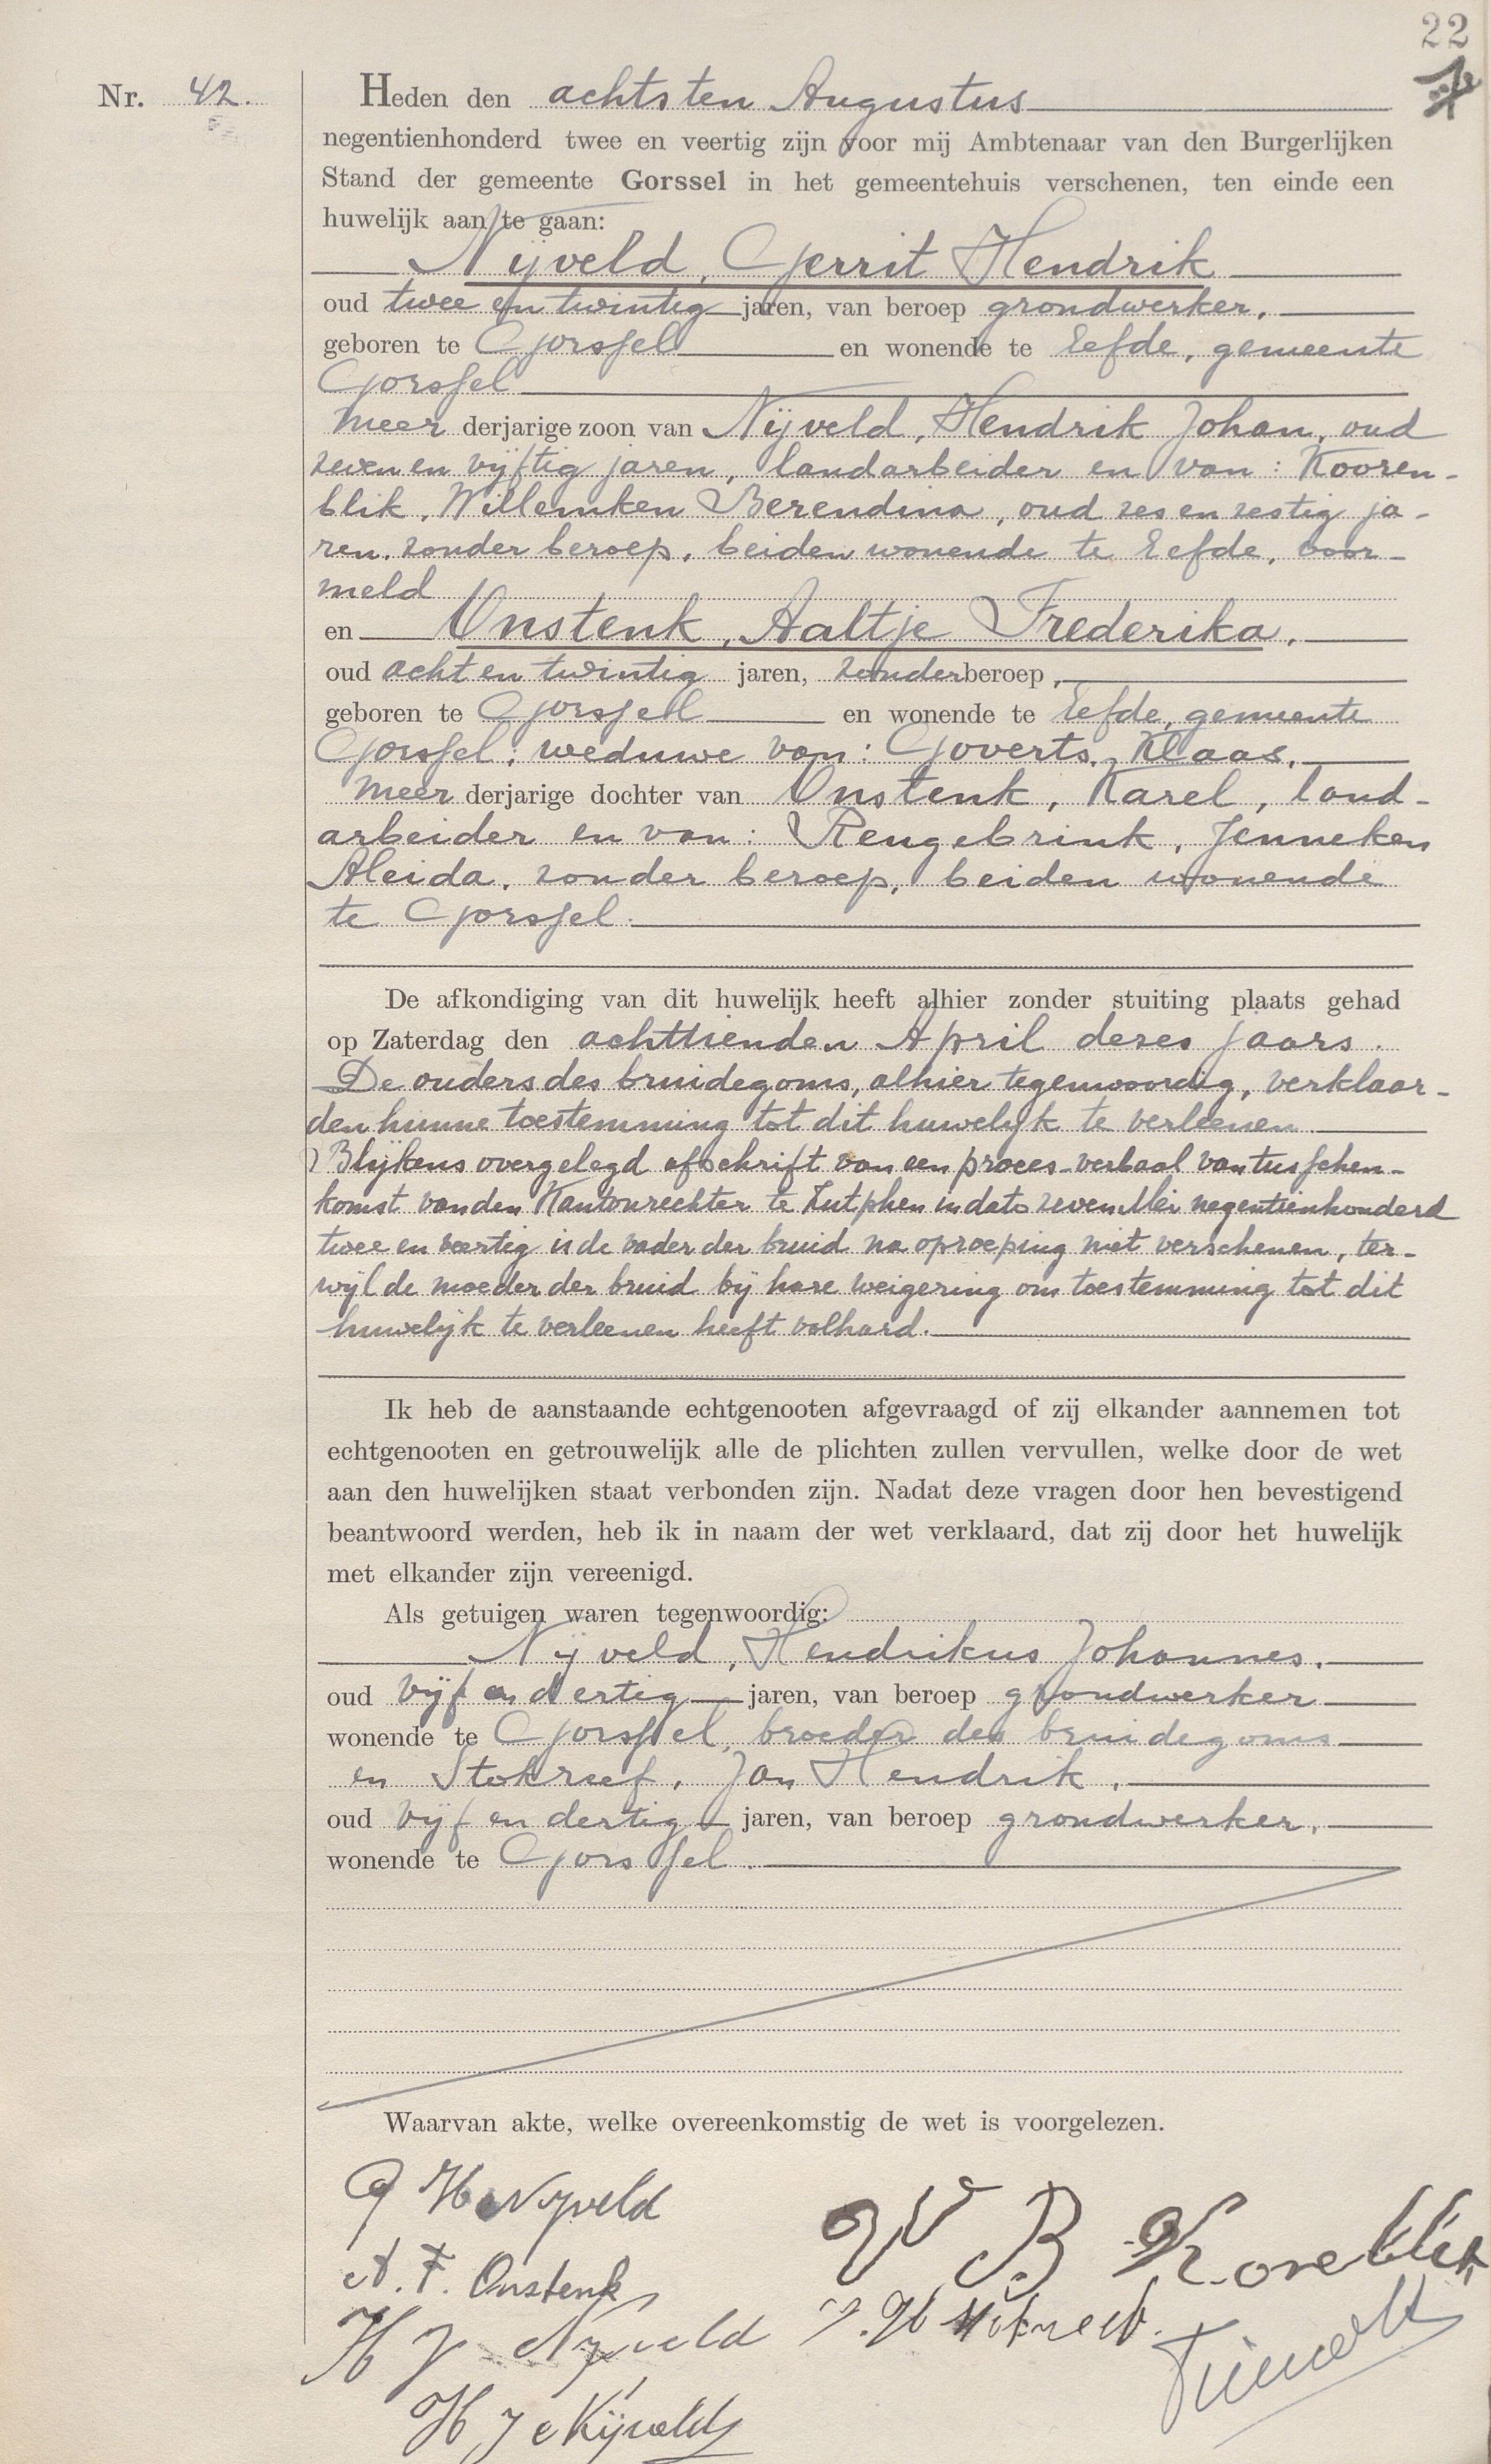 22
Nr. 42.
Heden den achtsten Augustus
negentienhonderd twee en veertig zijn voor mij Ambtenaar van den Burgerlijken
Stand der gemeente Gorssel in het gemeentehuis verschenen, ten einde een
huwelijk aan te gaan:
Nijveld, Gerrit Hendrik
oud twee en twintig jaren, van beroep grondwerker,
geboren te Gorssel en wonende te Eefde, gemeente
Gorssel
meer derjarige zoon van Nijveld, Hendrik Johan, oud
zeven en vijftig jaren, landarbeider en van: Kooren-
blik, Willemken Berendina, oud zes en zestig ja-
ren, zonder beroep, beiden wonende te Eefde, voor-
meld
en Onstenk, Aaltje Frederika,
oud acht en twintig jaren, zonder beroep,
geboren te Gorssel en wonende te Eefde, gemeente
Gorssel; weduwe van: Goverts, Klaas,
meer derjarige dochter van Onstenk, Karel, land-
arbeider en van: Rengebrink, Jenneken
Aleida, zonder beroep, beiden wonende
te Gorssel.
De afkondiging van dit huwelijk heeft alhier zonder stuiting plaats gehad
op Zaterdag den achttienden April dezes jaars.
De ouders des bruidegoms, alhier tegenwoordig, verklaar-
den hunne toestemming tot dit huwelijk te verleenen
Blijkens overgelegd afschrift van een proces-verbaal van tusschen-
komst van den Kantonrechter te Zutphen in dato zeven Mei negentienhonderd
twee en veertig is de vader der bruid na oproeping niet verschenen, ter-
wijl de moeder der bruid bij hare weigering om toestemming tot dit
huwelijk te verleenen heeft volhard.
Ik heb de aanstaande echtgenooten afgevraagd of zij elkander aannemen tot
echtgenooten en getrouwelijk alle de plichten zullen vervullen, welke door de wet
aan den huwelijken staat verbonden zijn. Nadat deze vragen door hen bevestigend
beantwoord werden, heb ik in naam der wet verklaard, dat zij door het huwelijk
met elkander zijn vereenigd.
Als getuigen waren tegenwoordig:
Nijveld, Hendrikus Johannes,
oud vijf en dertig jaren, van beroep grondwerker
wonende te Gorssel, broeder des bruidegoms
en Stokreef, Jan Hendrik,
oud vijf en dertig jaren, van beroep grondwerker,
wonende te Gorssel.
Waarvan akte, welke overeenkomstig de wet is voorgelezen.
G H Nijveld
W B Koreblik
A. F. Onstenk
H J Nijveld
J. H Stokreef.
H J Nijveld